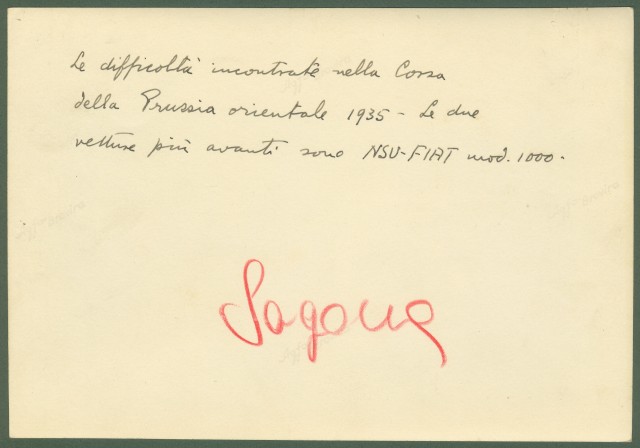 Le difficoltà incontrate nella Corsa
della Prussia orientale 1935 - Le due
vetture più avanti sono NSU-FIAT mod. 1000.